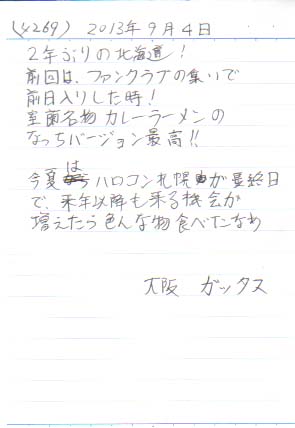 (4269) 2013年9月4日
2年ぶりの北海道!
前回は、ファンクラブの集いで
前日入りした時!
室蘭名物カレーラーメンの
なっちバージョン最高!!
今夏はハロコン札幌が最終日
で、来年以降も来る機会が
増えたら色んな物食べたいなぁ
大阪 ガッタス